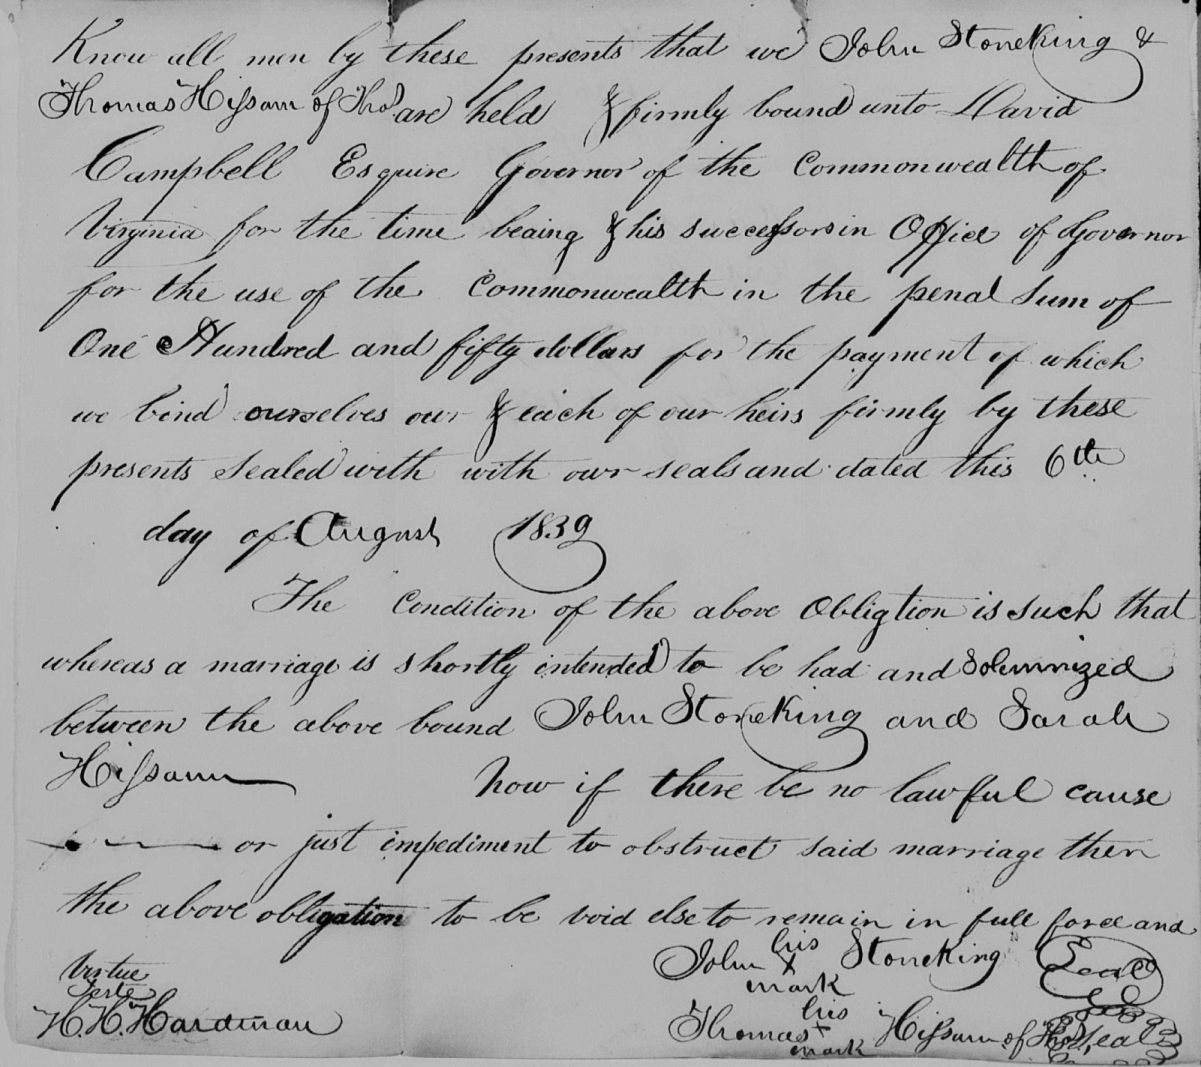 Know all men by these presents that we John Stoneking &
Thomas Hissam of Thos. are held & firmly bound unto David
Campbell Esquire Governor of the Commonwealth of
Virginia for the time beaing & his successors in Office of Governor
for the use of the Commonwealth in the penal Sum of
One Hundred and fifty dollars for the payment of which
we bind ourselves our & each of our heirs firmly by these
presents Sealed with with our seals and dated this 6th
day of August 1839
The Condition of the above Obligtion is Such that
whereas a marriage is shortly intended to be had and Solemnized
between the above bound John Stoneking and Sarah
Hissam Now if there be no lawful cause
or just impediment to obstruct said marriage then
the above obligation to be void else to remain in full force and
Virtue
Teste
H. H. Hardman
John his X mark Stoneking Seal
Thomas his + mark Hissam of Thos. Seal